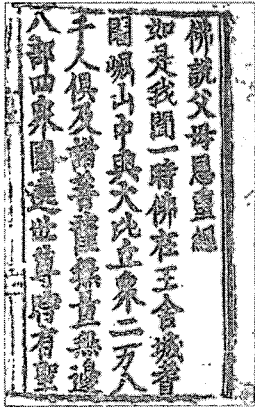 佛說父母恩重經
如是我聞一時佛在王舍城耆
闍崛山中與大比丘衆二万八
千人俱及諸菩薩無量無邊
八部四衆圍遶世尊時有聖